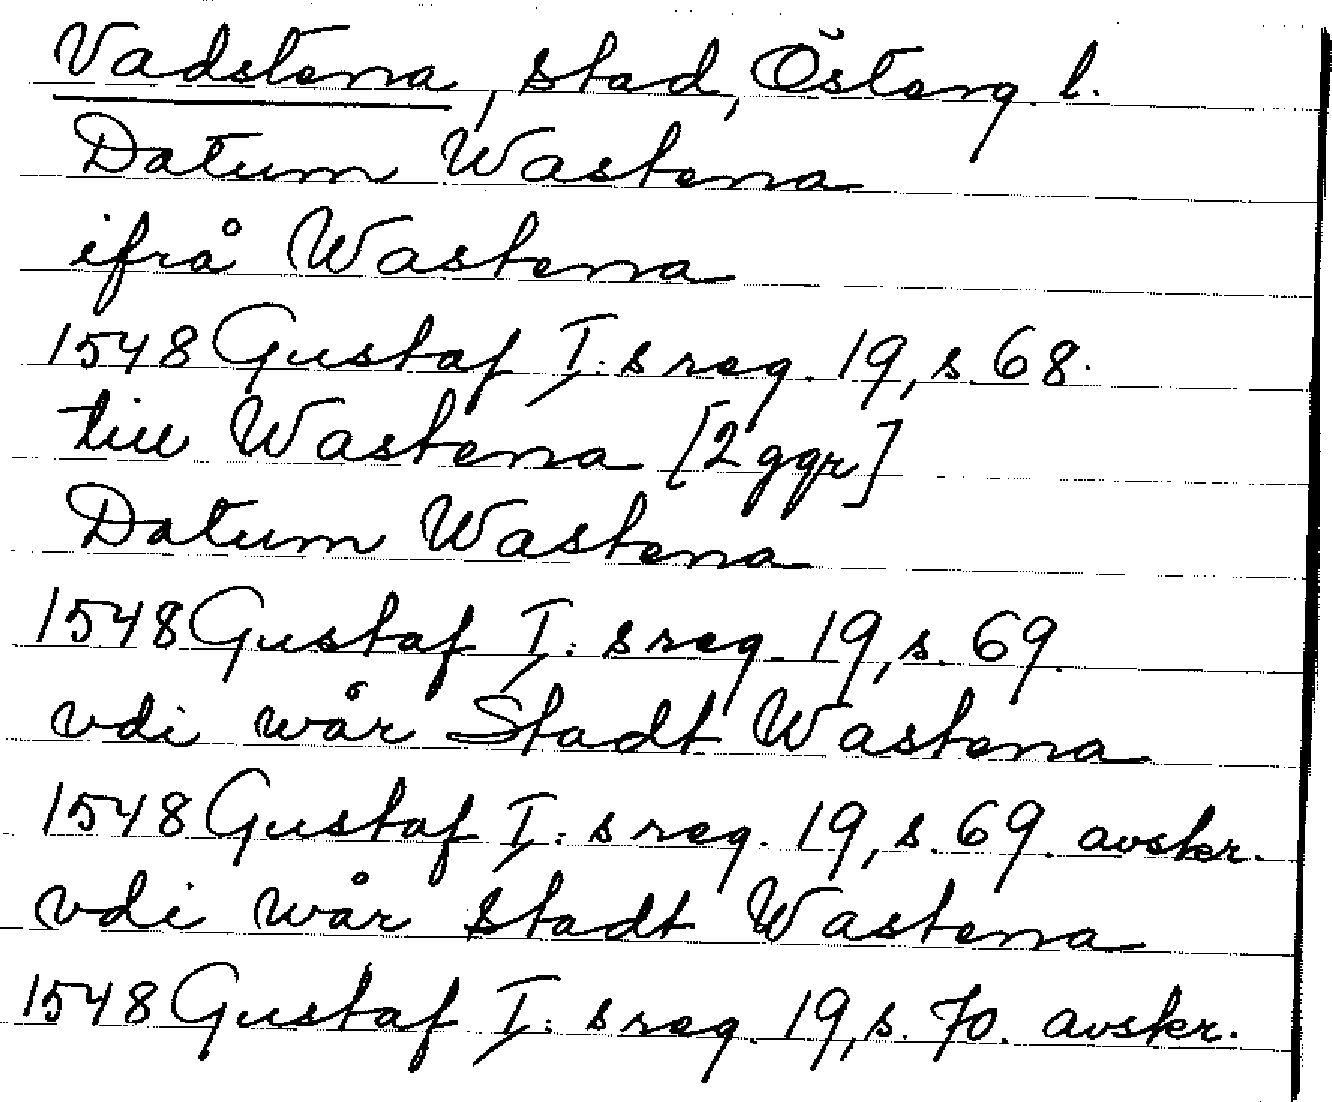 Vadstena, stad, Österg. l.
Datum Wastena
ifrå Wastena
1548 Gustaf I:s reg. 19, s. 68.
till Wastena [2 ggr]
Datum Wastena
1548 Gustaf I:s reg. 19, s. 69.
vdi wår Stadt Wastena
1548 Gustaf I:s reg. 19, s. 69. avskr.
vdi wår stadt Wastena
1548 Gustaf I:s reg. 19, s. 70. avskr.